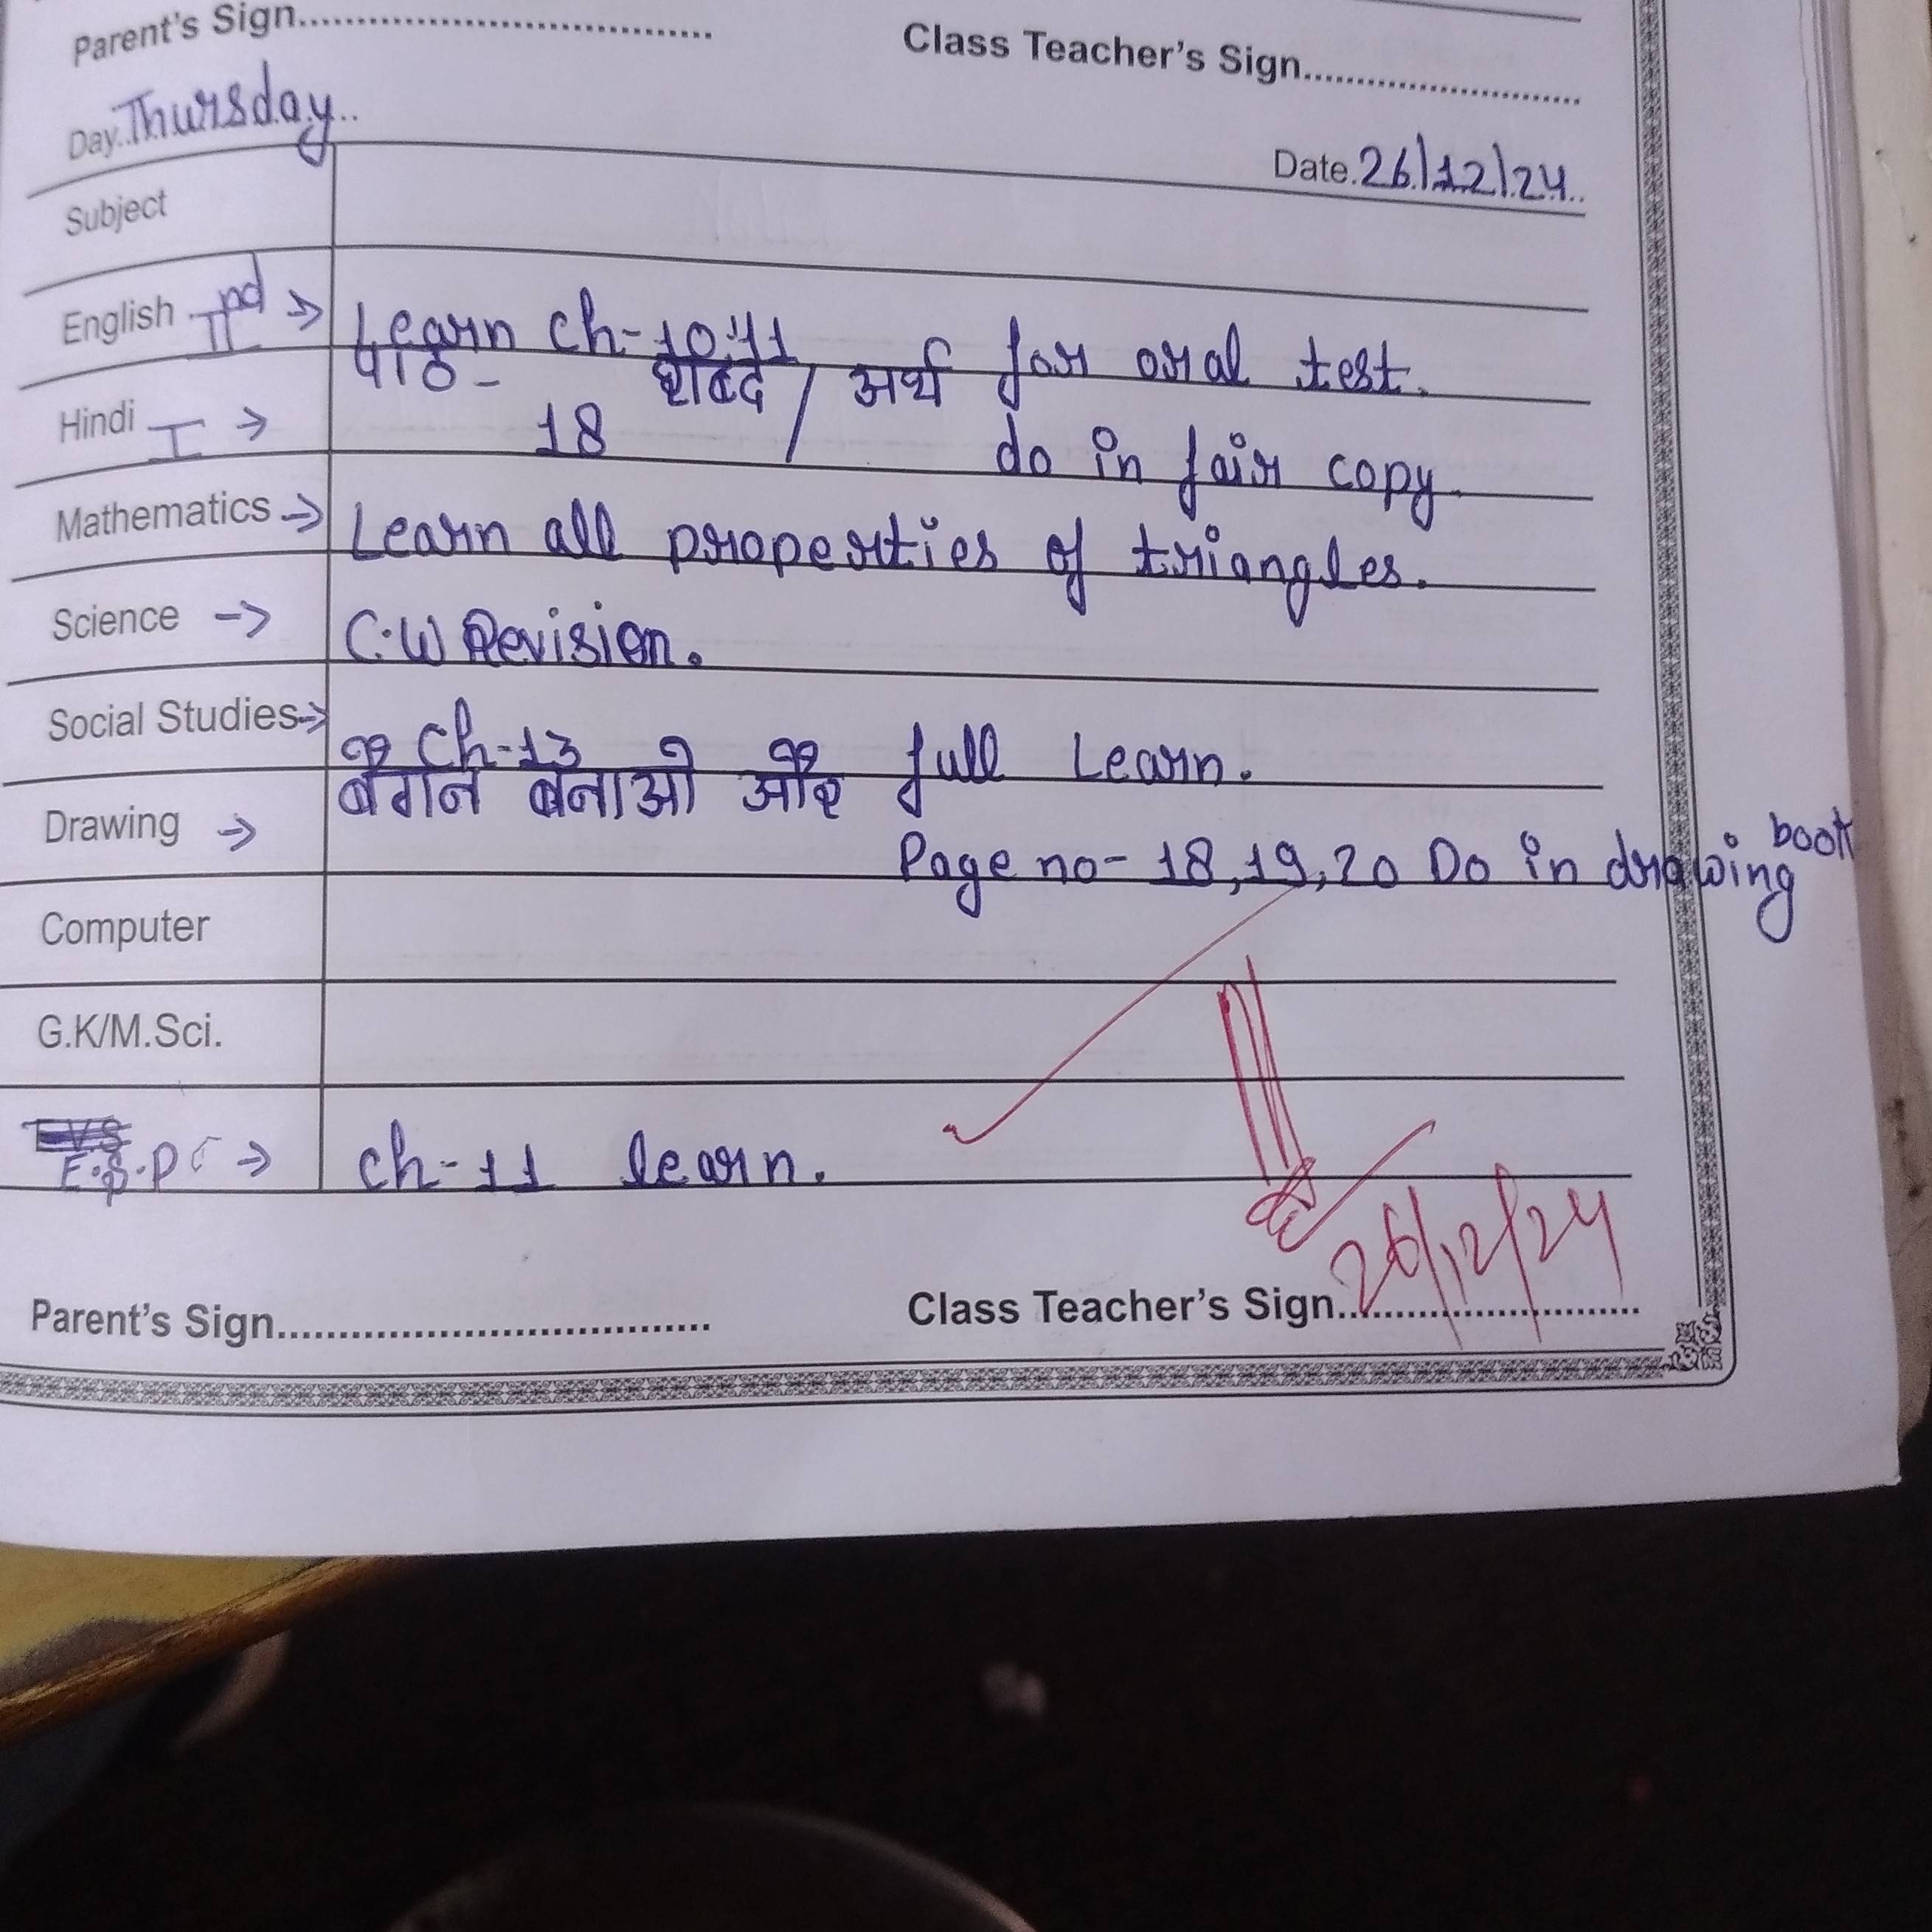 Parent's Sign.................................... Class Teacher's Sign..............................
Day..Thursday.. Date.26/12/24..
Subject
English IInd → Learn ch-10,11 for oral test.
Hindi I → पाठ- 18 शब्द / अर्थ do in fair copy.
Mathematics → Learn all properties of triangles.
Science → C.W Revision.
Social Studies → Ch-13 full Learn.
Drawing → बैंगन बनाओ और Page no- 18,19,20 Do in drawing book
Computer
G.K/M.Sci.
→ ch-11 learn.
26/12/24
Parent's Sign.................................... Class Teacher's Sign..............................